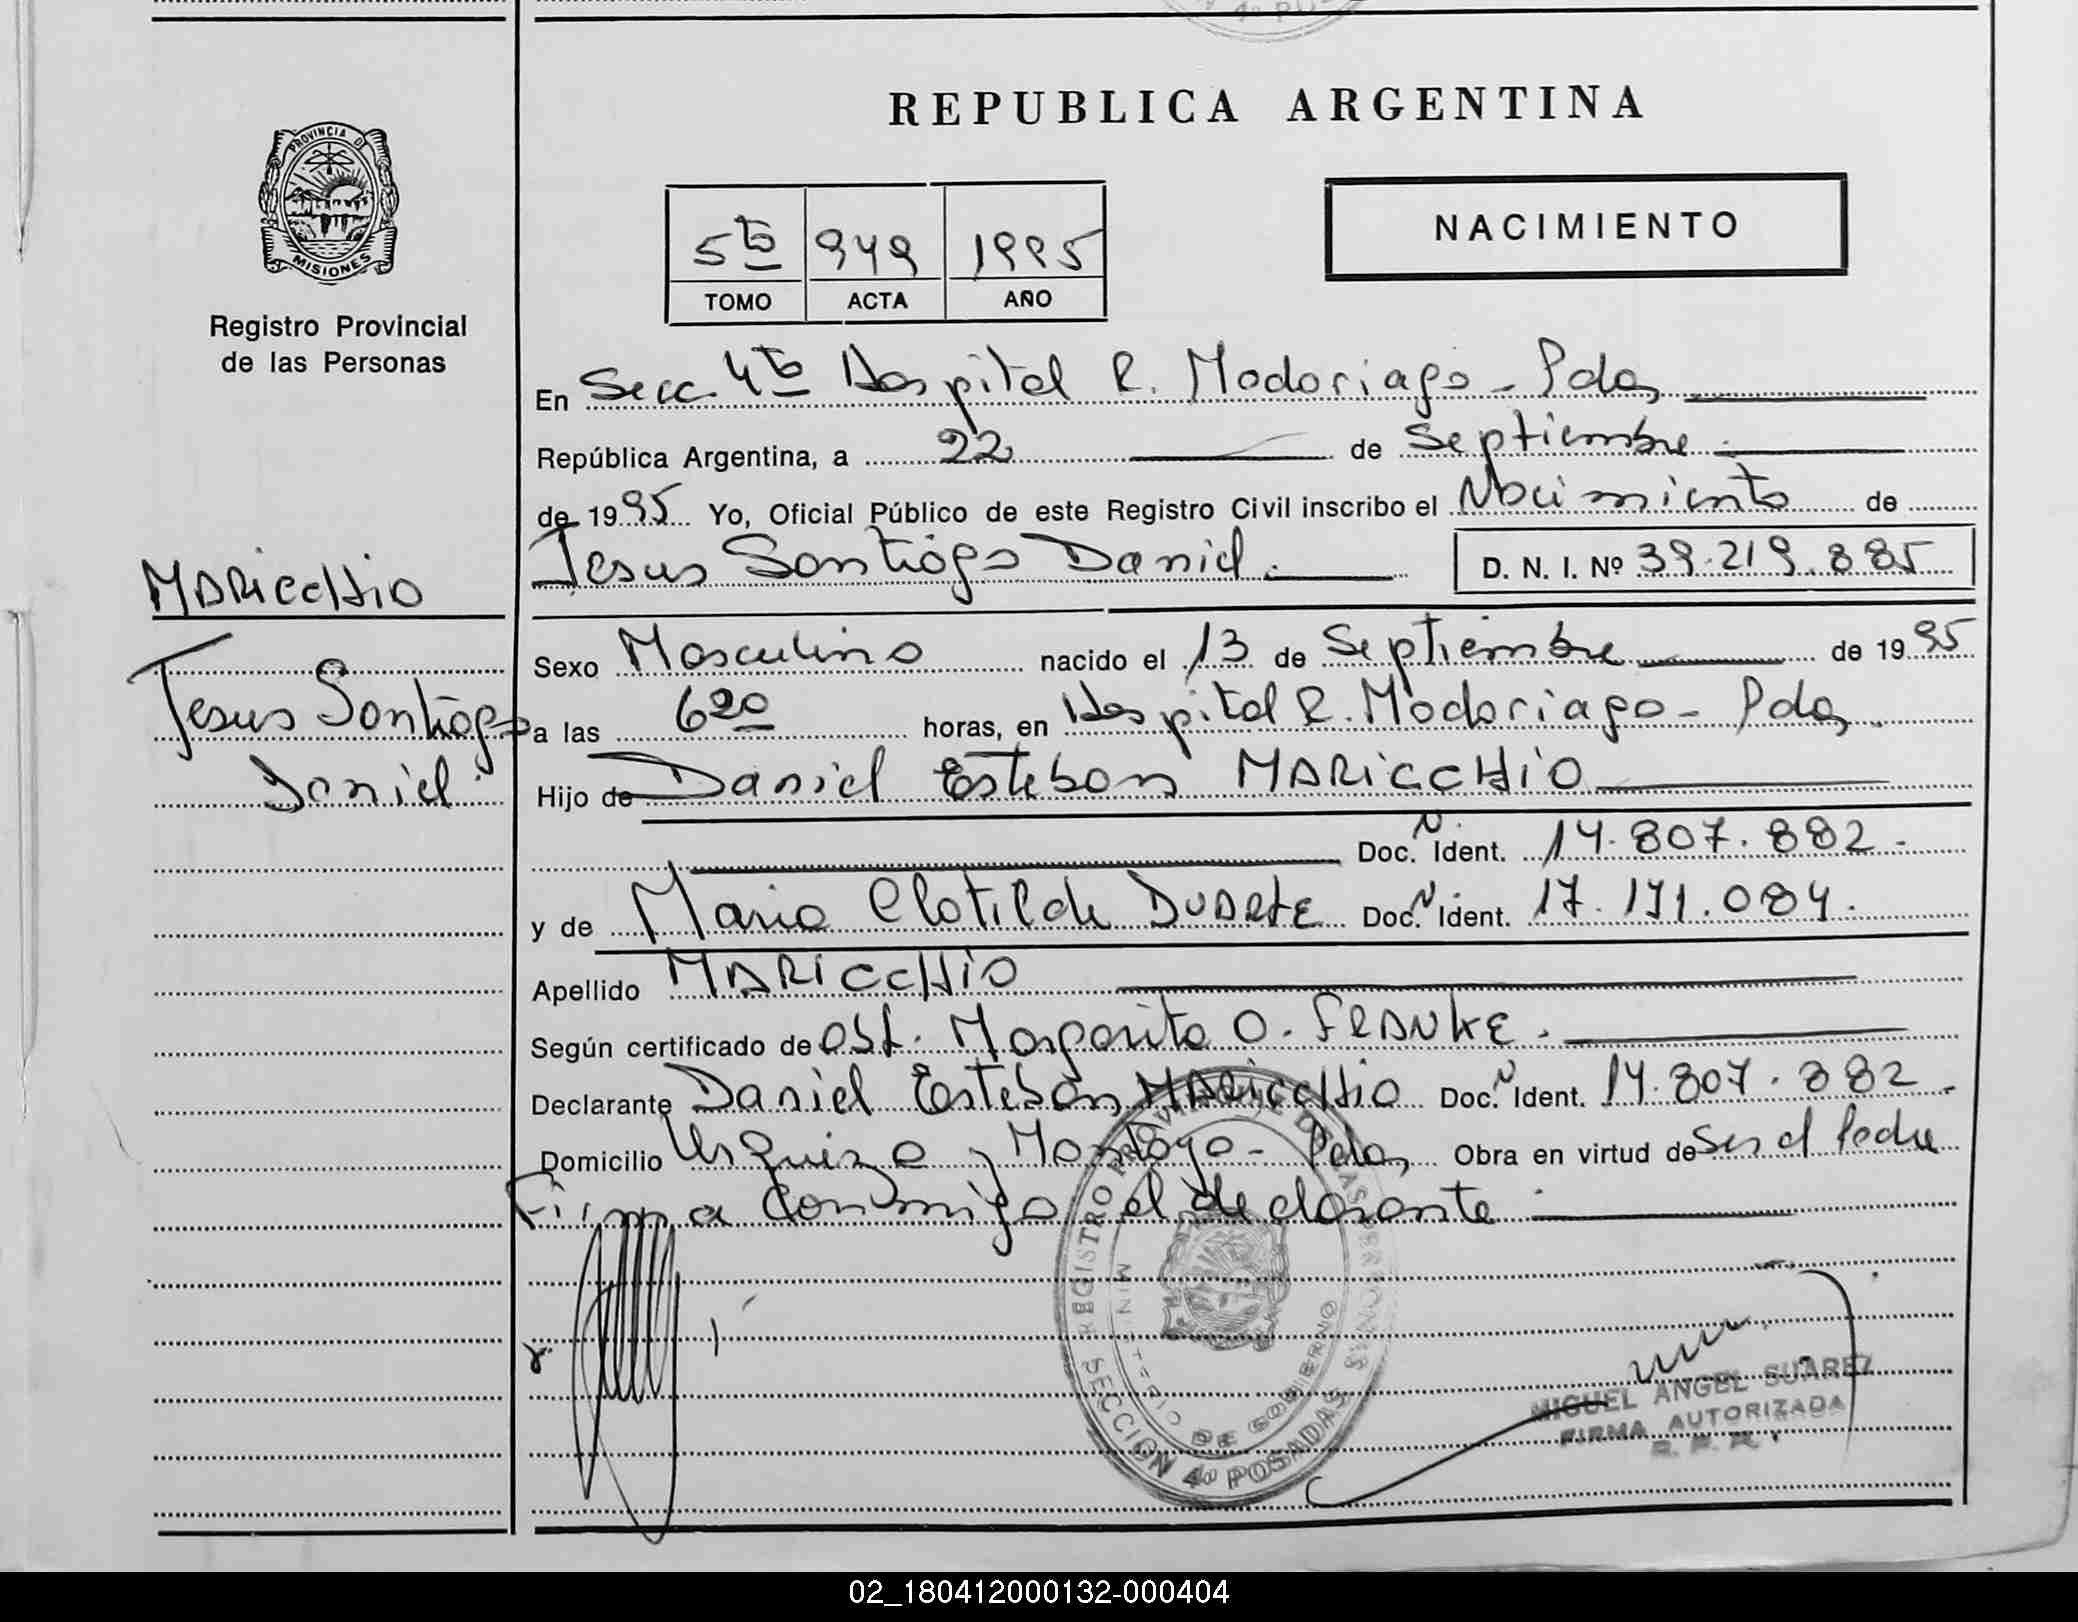 REPUBLICA ARGENTINA
PROVINCIA DE
MISIONES
Registro Provincial
de las Personas
NACIMIENTO
5to 949 1995
TOMO ACTA AÑO
En Secc. 4ta Hospital R. Madariaga - Pdas
República Argentina, a 22 de Septiembre
de 1995 Yo, Oficial Público de este Registro Civil inscribo el Nacimiento de
Jesus Santiago Daniel. D. N. I. Nº 39.219.885
MARICCHIO
Jesus Santiago
Daniel.
Sexo Masculino nacido el 13 de Septiembre de 1995
a las 6 20 horas, en Hospital R. Madariaga - Pdas.
Hijo de Daniel Esteban MARICCHIO
Doc. N. Ident. 14.807.882.-
y de Maria Clotilde DUARTE Doc. N Ident. 17.171.084.
Apellido MARICCHIO
Según certificado de Obst. Margarita O. FRANKE.
Declarante Daniel Esteban MARICCHIO Doc. N Ident. 14.807.882.
Domicilio Urquiza y Montoya - Pdas, Obra en virtud de Ser el Padre
Firma Conmigo el declarante.
REGISTRO PROVINCIAL DE LAS PERSONAS
MINISTERIO DE GOBIERNO
SECCION 4º POSADAS
MIGUEL ANGEL SUAREZ
FIRMA AUTORIZADA
R. P. P.
02_180412000132-000404